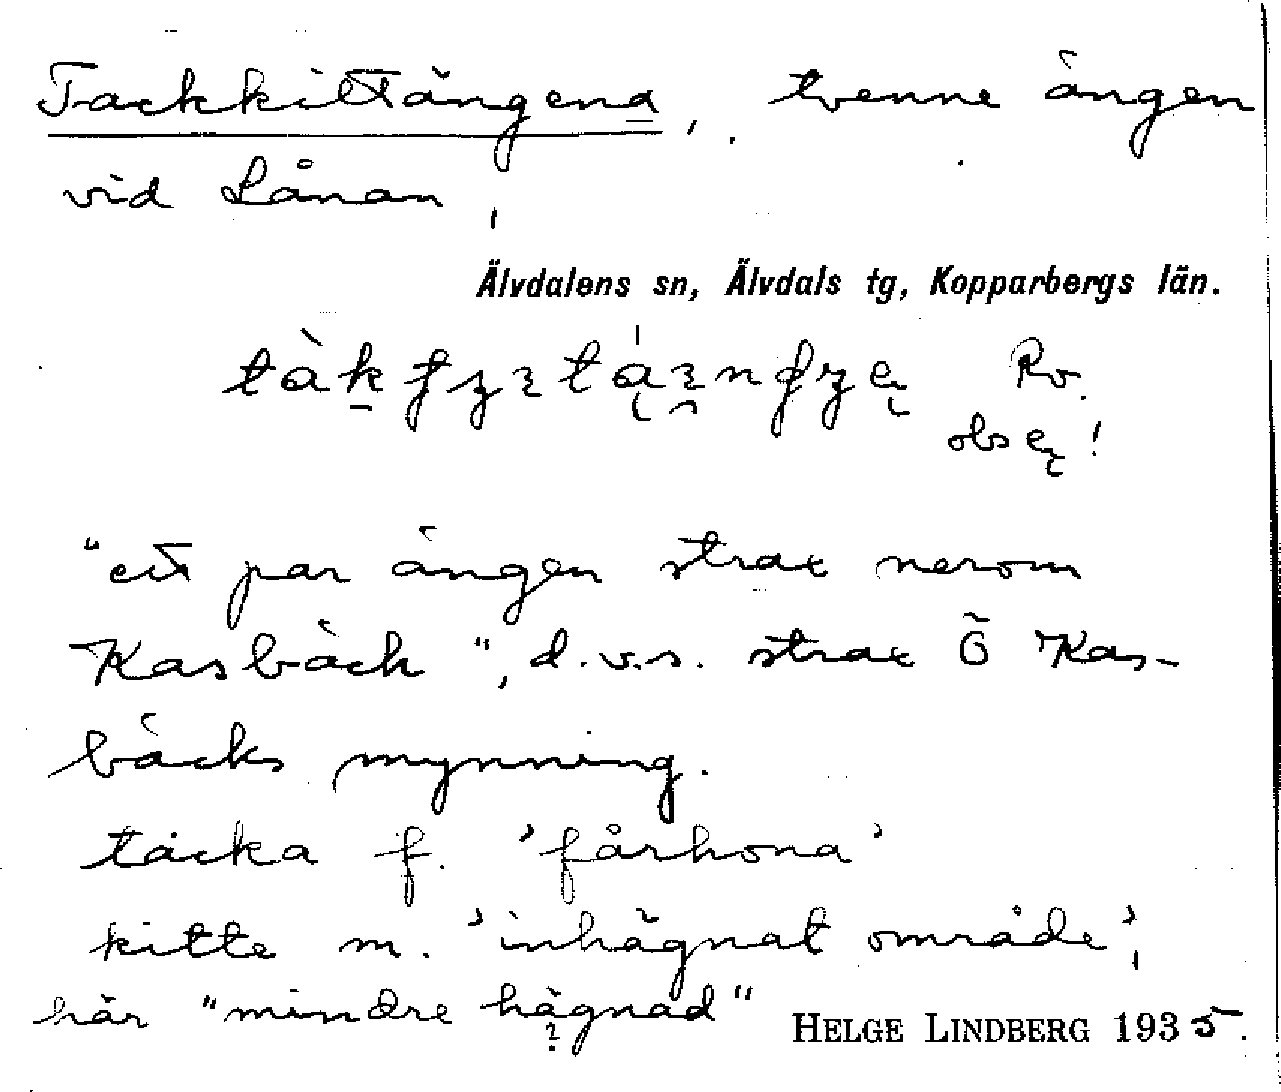 Tackkittängena, tvenne ängen
vid Lånan,
Älvdalens sn, Älvdals tg, Kopparbergs län.
Rv.
obs !
"ett par ängen strax nerom
Kasbäck", d.v.s. strax Ö Kas-
bäcks mynning.
tacka f. 'fårhona'
kitte m. 'inhägnat område',
här "mindre hägnad"
HELGE LINDBERG 1935.